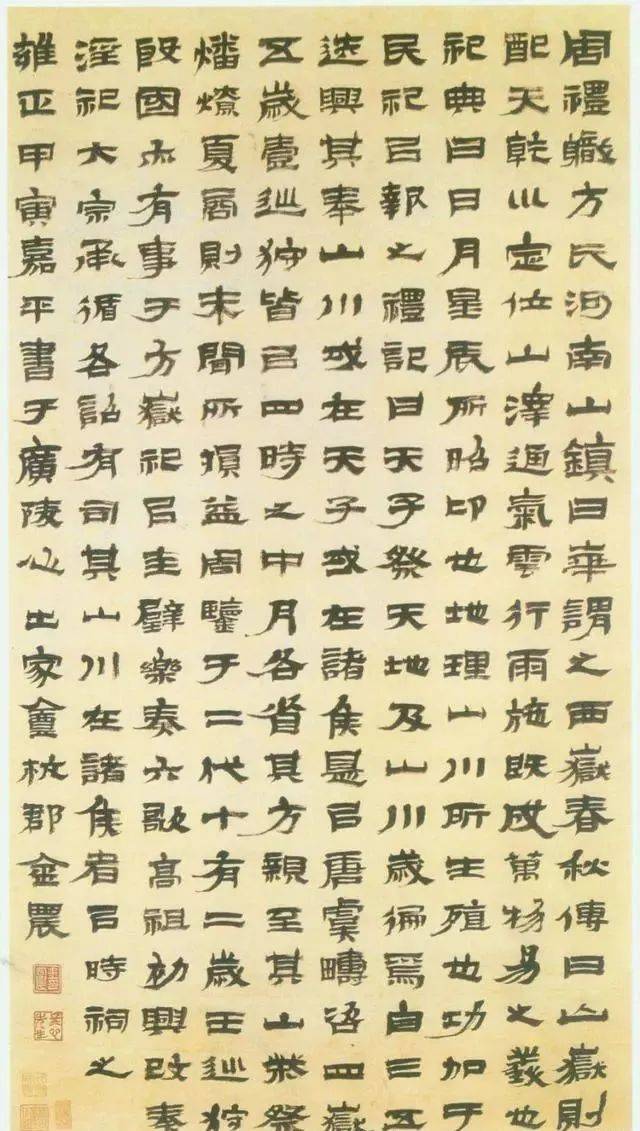 周禮職方氏河南山鎮曰華謂之西嶽春秋傳曰山嶽則
配天乾巛定位山澤通氣雲行雨施既成萬物易之義也
祀典曰日月星辰所昭印也地理山川所生殖也功加于
民祀以報之禮記曰天子祭天地及山川歲徧焉自三五
迭興其奉山川或在天子或在諸侯是以唐虞疇咨四嶽
五歲壹巡狩皆以四時之中月各省其方親至其山柴祭
燔燎夏商則未聞所損益周鑒于二代十有二歲王巡狩
殷國亦有事于方嶽祀以圭璧樂奏六歌高祖初興改秦
淫祀大宗承循各詔有司其山川在諸侯者以時祠之
雍正甲寅嘉平書于廣陵心出家盦杭郡金農